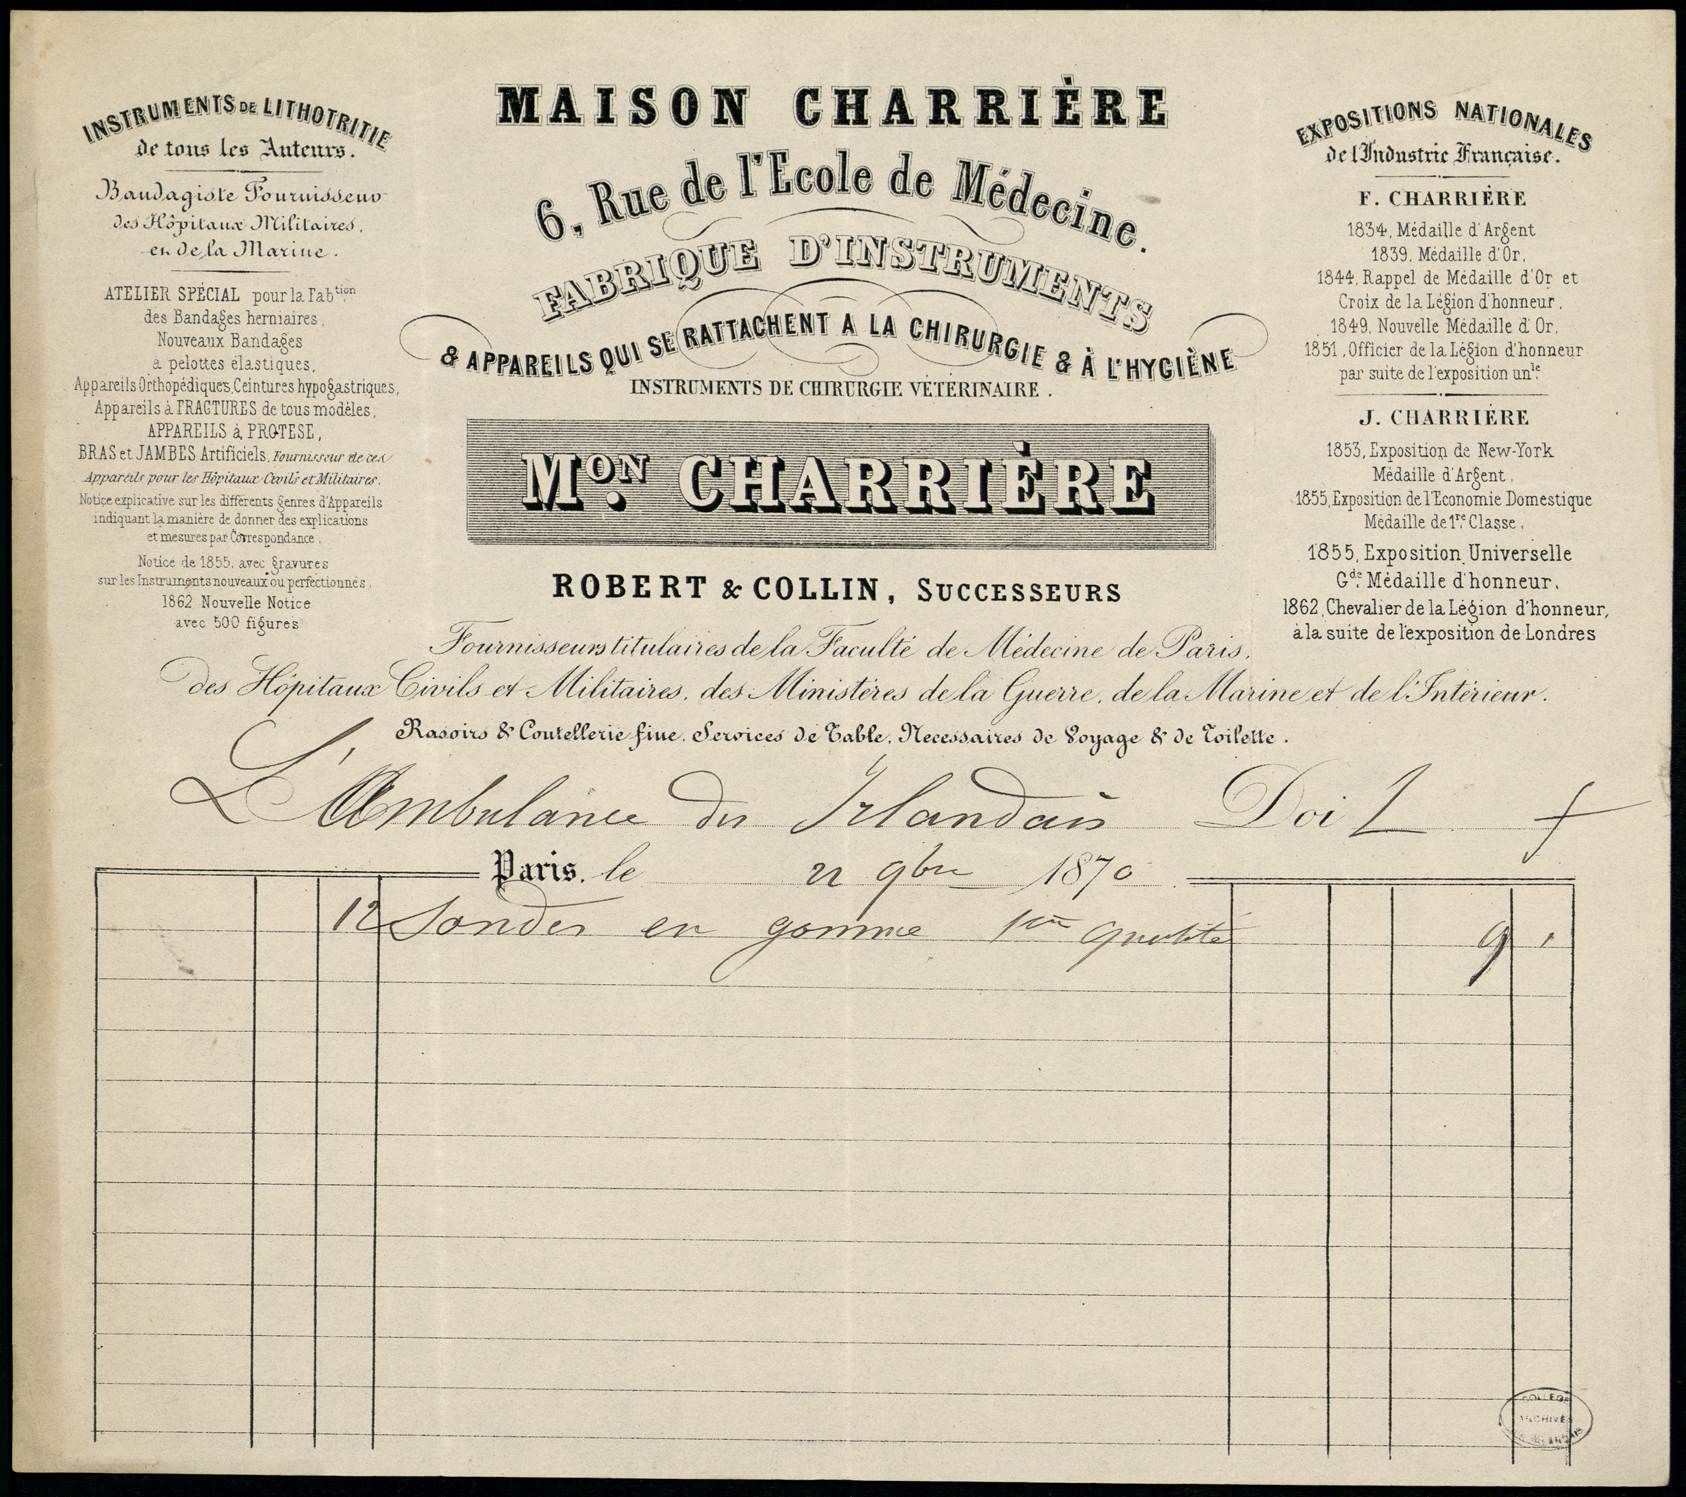 INSTRUMENTS DE LITHOTRITIE
de tous les Auteurs.
Bandagiste Fournisseur
des Hôpitaux Militaires,
et de la Marine.
ATELIER SPÉCIAL pour la Fabtion
des Bandages herniaires,
Nouveaux Bandages
à pelottes élastiques,
Appareils Orthopédiques, Ceintures hypogastriques,
Appareils à FRACTURES de tous modèles,
APPAREILS à PROTESE,
BRAS et JAMBES Artificiels, Fournisseur de ces
Appareils pour les Hôpitaux Civils et Militaires.
Notice explicative sur les différents genres d'Appareils
indiquant la manière de donner des explications
et mesures par Correspondance.
Notice de 1855, avec gravures
sur les Instruments nouveaux ou perfectionnés,
1862 Nouvelle Notice
avec 500 figures
MAISON CHARRIÈRE
6, Rue de l'Ecole de Médecine.
FABRIQUE D'INSTRUMENTS
& APPAREILS QUI SE RATTACHENT A LA CHIRURGIE & À L'HYGIÈNE
INSTRUMENTS DE CHIRURGIE VÉTÉRINAIRE.
MON. CHARRIÈRE
ROBERT & COLLIN, SUCCESSEURS
Fournisseurs titulaires de la Faculté de Médecine de Paris,
des Hôpitaux Civils et Militaires, des Ministères de la Guerre, de la Marine et de l'Intérieur.
Rasoirs & Coutellerie fine, Services de Table, Necessaires de Voyage & de Toilette.
EXPOSITIONS NATIONALES
de l'Industrie Française.
F. CHARRIÈRE
1834, Médaille d'Argent
1839, Médaille d'Or,
1844, Rappel de Médaille d'Or et
Croix de la Légion d'honneur,
1849, Nouvelle Médaille d'Or,
1851, Officier de la Légion d'honneur
par suite de l'exposition unle.
J. CHARRIÈRE
1853, Exposition de New-York
Médaille d'Argent,
1855, Exposition de l'Economie Domestique
Médaille de 1re. Classe,
1855, Exposition Universelle
Gde. Médaille d'honneur,
1862, Chevalier de la Légion d'honneur,
à la suite de l'exposition de Londres
L'Ambulance des Irlandais Doit
Paris, le 22 9bre 1870
12 Sondes en gomme 1ère qualité 9 "
COLLEGE
ARCHIVES